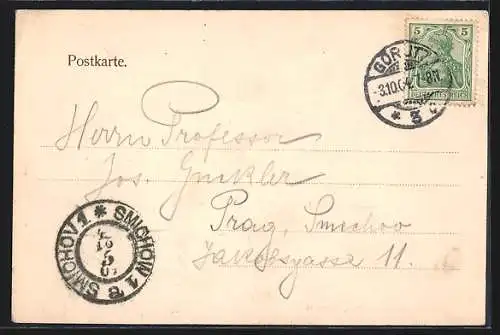 Postkarte.
5 5
DEUTSCHES REICH
GÖRLITZ
3.10.04 7-8N
* 3 c
Herrn Professor
Jos.
Prag, Smichov
Jakobsgasse 11.
SMICHOV 1 * SMICHOW 1 a
4
10
5